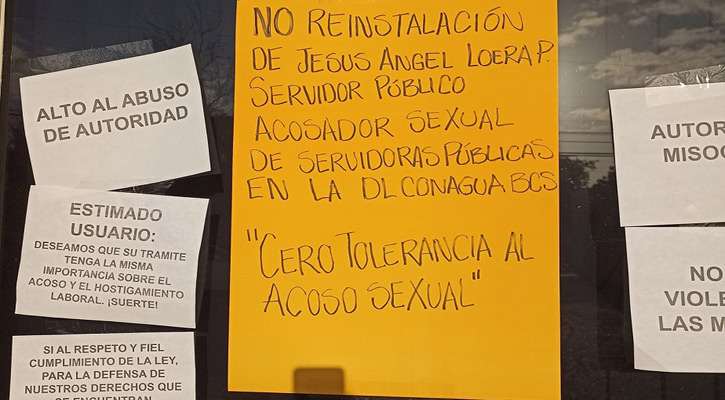 ALTO AL ABUSO
DE AUTORIDAD
ESTIMADO
USUARIO:
DESEAMOS QUE SU TRAMITE
TENGA LA MISMA
IMPORTANCIA SOBRE EL
ACOSO Y EL HOSTIGAMIENTO
LABORAL. ¡SUERTE!
SI AL RESPETO Y FIEL
CUMPLIMIENTO DE LA LEY,
PARA LA DEFENSA DE
NUESTROS DERECHOS QUE
SE ENCUENTRAN
NO REINSTALACIÓN
DE JESUS ANGEL LOERA P.
SERVIDOR PÚBLICO
ACOSADOR SEXUAL
DE SERVIDORAS PÚBLICAS
EN LA DLCONAGUA BCS
"CERO TOLERANCIA AL
ACOSO SEXUAL"
AUTOR
MISO
NO
VIOLE
LAS M